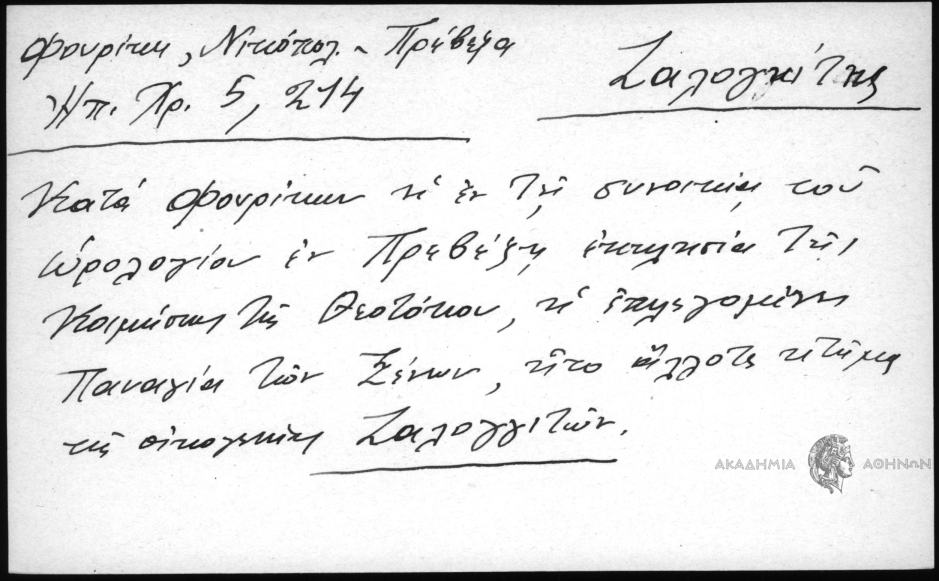 Φουρίκη, Νικόπολ. - Πρέβεζα
Ζαλογκίτης
Ἠπ. Χρ. 5, 214
Κατά Φουρίκην ἡ ἐν τῇ συνοικίᾳ τοῦ
ὡρολογίου ἐν Πρεβέζῃ ἐκκλησία τῆς
Κοιμήσεως τῆς Θεοτόκου, ἡ ἐπιλεγομένη
Παναγία τῶν Ξένων, ἦτο ἄλλοτε κτῆμα
τῆς οἰκογενείας Ζαλογγιτῶν.
ΑΚΑΔΗΜΙΑ ΑΘΗΝΩΝ